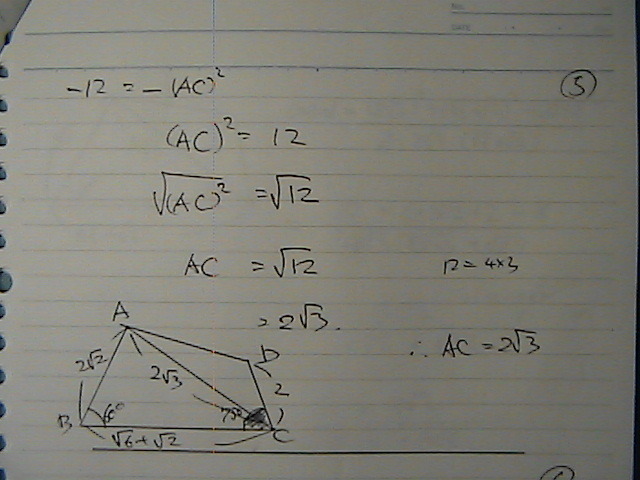 No.
DATE
⑤
-12 = -(AC)²
(AC)² = 12
√(AC)² = √12
AC = √12
12 = 4×3
= 2√3.
∴ AC = 2√3
A
D
2√2
2√3
2
B
60°
75°
C
√6+√2